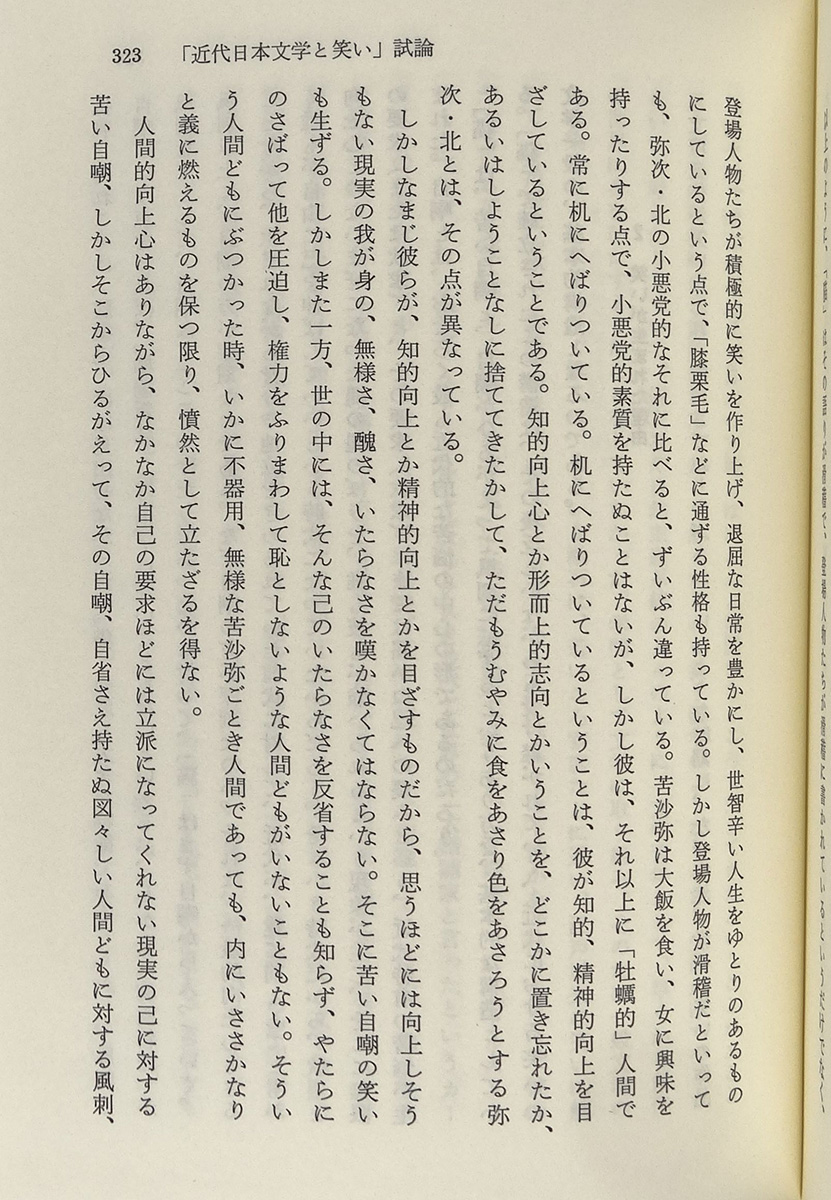 323　「近代日本文学と笑い」試論
登場人物たちが積極的に笑いを作り上げ、退屈な日常を豊かにし、世智辛い人生をゆとりのあるもの
にしているという点で、「膝栗毛」などに通ずる性格も持っている。しかし登場人物が滑稽だといって
も、弥次・北の小悪党的なそれに比べると、ずいぶん違っている。苦沙弥は大飯を食い、女に興味を
持ったりする点で、小悪党的素質を持たぬことはないが、しかし彼は、それ以上に「牡蠣的」人間で
ある。常に机にへばりついている。机にへばりついているということは、彼が知的、精神的向上を目
ざしているということである。知的向上心とか形而上的志向とかいうことを、どこかに置き忘れたか、
あるいはしようことなしに捨ててきたかして、ただもうむやみに食をあさり色をあさろうとする弥
次・北とは、その点が異なっている。
しかしなまじ彼らが、知的向上とか精神的向上とかを目ざすものだから、思うほどには向上しそう
もない現実の我が身の、無様さ、醜さ、いたらなさを嘆かなくてはならない。そこに苦い自嘲の笑い
も生ずる。しかしまた一方、世の中には、そんな己のいたらなさを反省することも知らず、やたらに
のさばって他を圧迫し、権力をふりまわして恥としないような人間どもがいないこともない。そうい
う人間どもにぶつかった時、いかに不器用、無様な苦沙弥ごとき人間であっても、内にいささかなり
と義に燃えるものを保つ限り、憤然として立たざるを得ない。
人間的向上心はありながら、なかなか自己の要求ほどには立派になってくれない現実の己に対する
苦い自嘲、しかしそこからひるがえって、その自嘲、自省さえ持たぬ図々しい人間どもに対する風刺、